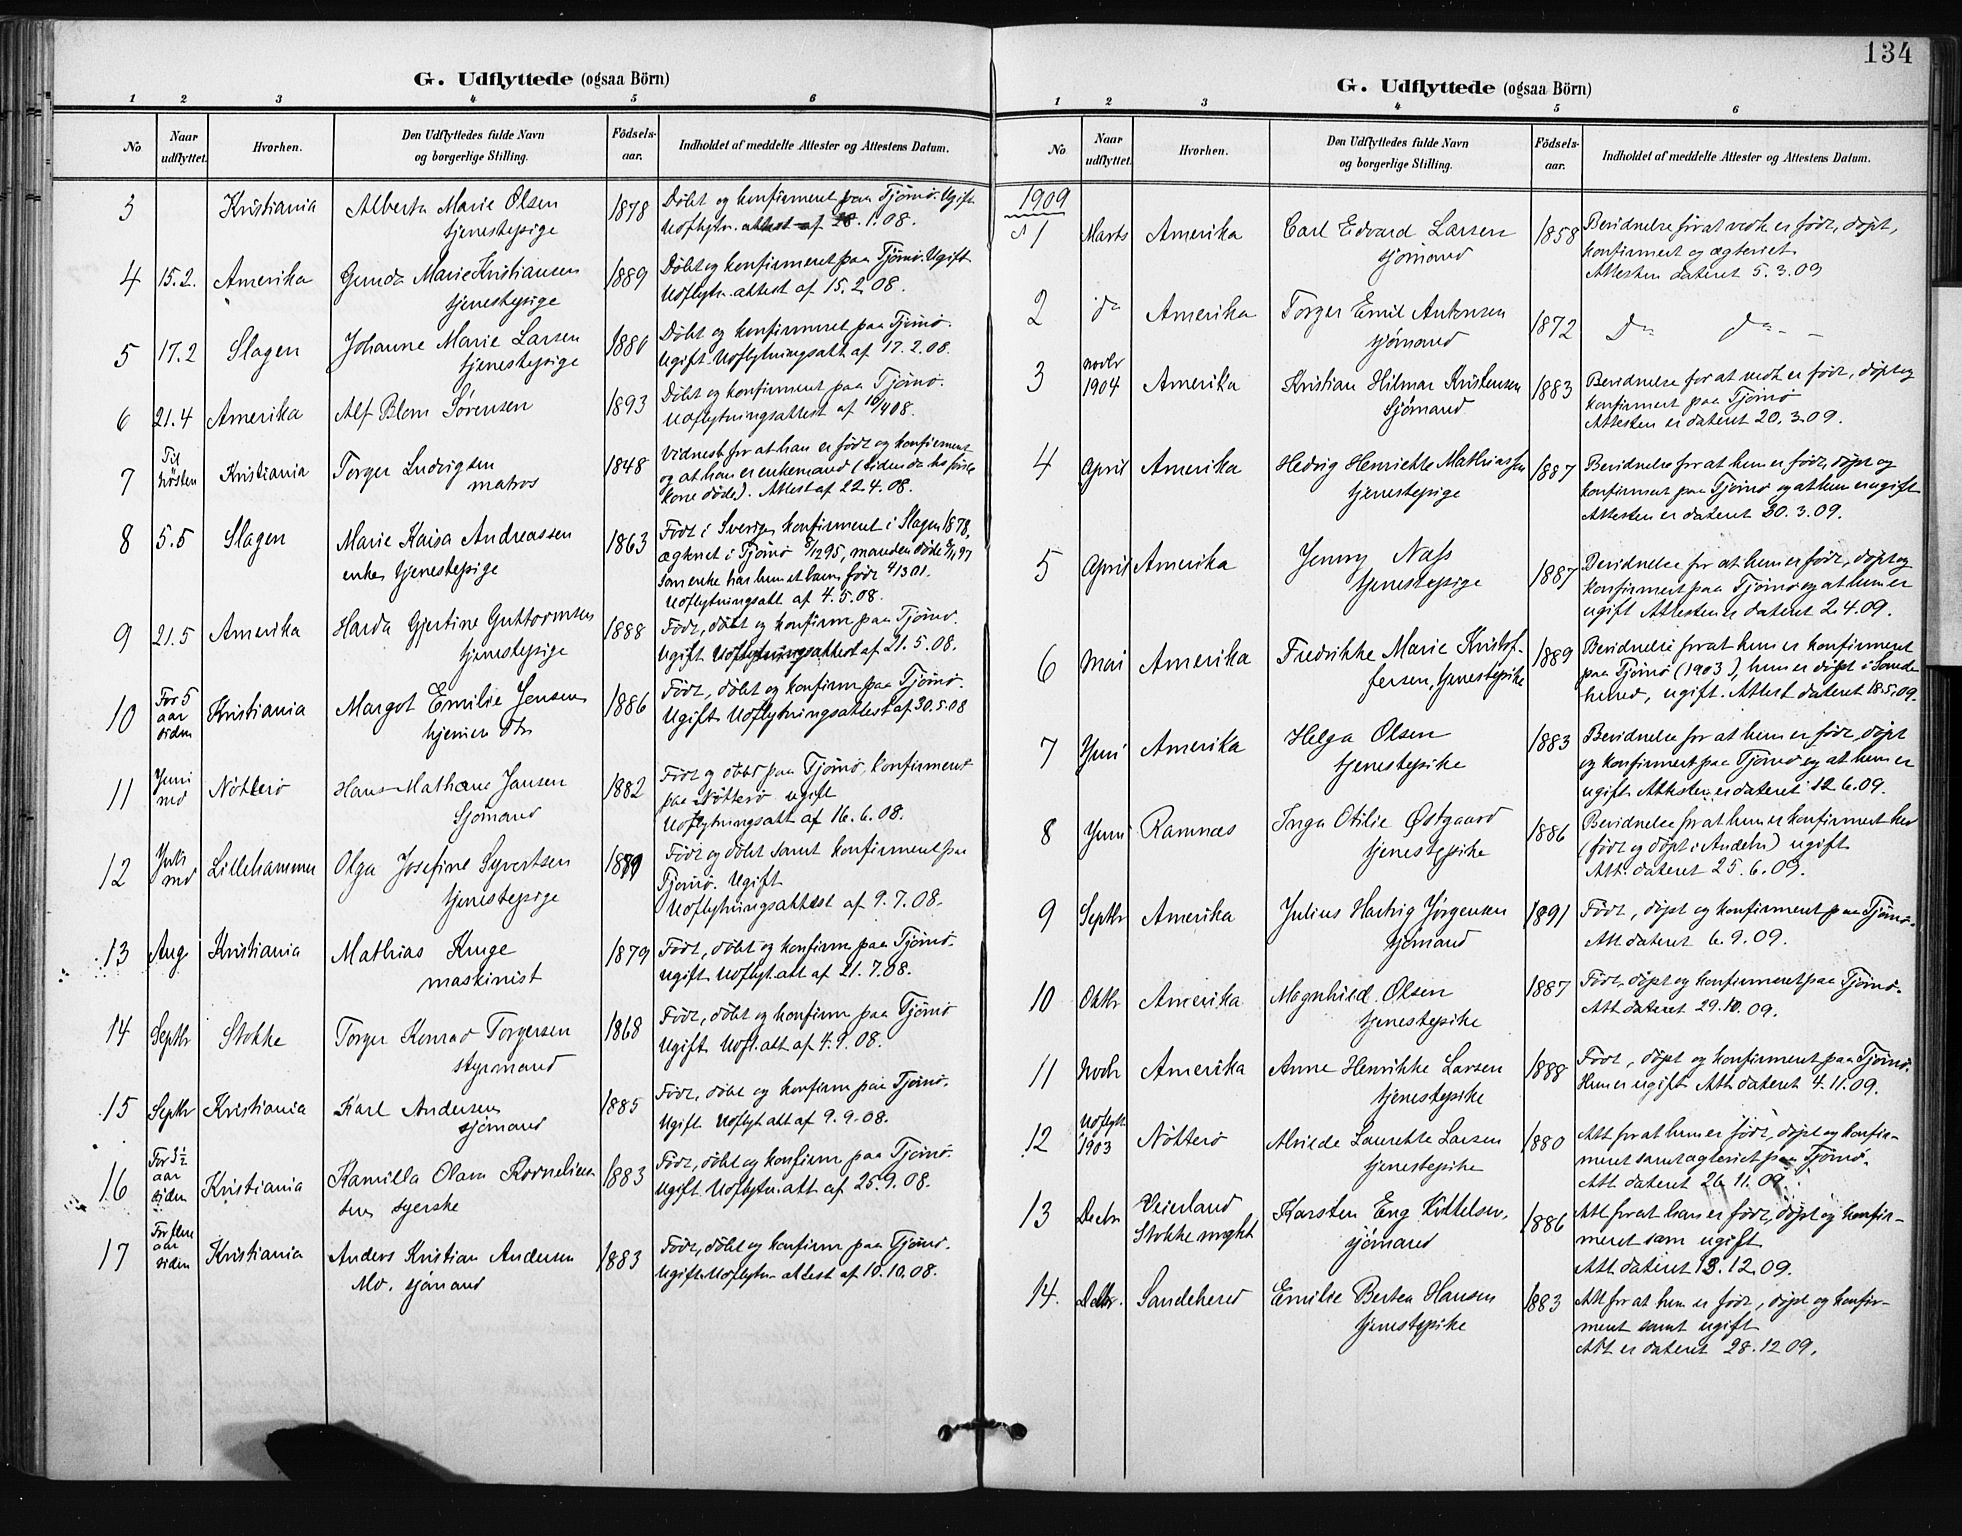 G. Udflyttede (ogsaa Börn)
1 2 3 4 5 6
No
Naar udflyttet.
Hvorhen.
Den Udflyttedes fulde Navn og borgerlige Stilling.
Födsels-aar.
Indholdet af meddelte Attester og Attestens Datum.
3 Kristiania Alberta Marie Olsen 1878 Döbt og konfirmeret paa Tjömö. Ugift
tjenestepige Udflytn. attest af 28.1.08.
4 15.2. Amerika Gunda Marie Kristiansen 1889 Döbt og konfirmeret paa Tjömö. Ugift
tjenestepige Udflytn. attest af 15.2.08.
5 17.2 Slagen Johanne Marie Larsen 1880 Döbt og konfirmeret paa Tjömö.
tjenestepige Ugift. Udflytningsatt af 17.2.08.
6 21.4 Amerika Alf Blom Sørensen 1893 Döbt og konfirmeret paa Tjömö.
Udflytningsattest af 10/4 08.
7 Til høsten Kristiania Torger Ludvigsen 1848 Vidnesb for at han er født og konfirmeret
matros og at han er enkemand (siden da hs sidste
kone døde). Attest af 22.4.08.
8 5.5 Slagen Marie Kaisa Andreassen 1863 Født i Sverige, konfirmeret i Slagen 1878,
enke, tjenestepige ægteviet i Tjömö 8/12 95, manden døde 8/11 97
Som enke har hun et barn født 4/3 01.
Udflytningsatt af 4.5.08.
9 21.5 Amerika Harda Gjertine Guttormsen 1888 Født, döbt og konfirm paa Tjömö.
tjenestepige Ugift Udflytningsattest af 21.5.08.
10 For 5 aar siden Kristiania Margot Emilie Jensen 1886 Født, döbt og konfirm paa Tjömö.
hjemmev. dtr Ugift Udflytningsattest af 30.5.08
11 Juni md Nötterö Hans Mathæus Jansen 1882 Født og döbt paa Tjömö, konfirmeret
Sjömand paa Nötterö ugift
Udflytningsatt af 16.6.08.
12 Juli md Lillehammer Olga Josefine Syvertsen Født og döbt samt konfirmeret paa
tjenestepige Tjömö. Ugift
Udflytningsattest af 9.7.08.
13 Aug Kristiania Mathias Kruge 1879 Født, döbt og konfirm paa Tjömö.
maskinist Ugift Udflyt. att af 21.7.08.
14 Septbr Stokke Torger Konrad Torgersen 1868 Født, döbt og konfirm paa Tjömö
styrmand Ugift Udfl. att af 4.9.08.
15 Septbr Kristiania Karl Andersen 1885 Født, döbt og konfirm paa Tjömö.
sjömand Ugift Udflyt att af 9.9.08.
16 For 3½ aar siden Kristiania Kamilla Olava Kornelius- 1883 Født, döbt og konfirm paa Tjömö.
sen syerske Ugift Udflytn. att af 25.9.08.
17 For flere aar siden Kristiania Anders Kristian Andersen 1883 Født, döbt og konfirm paa Tjömö.
Mo. sjömand Ugift Udflytn attest af 10.10.08.
134
G. Udflyttede (ogsaa Börn)
1 2 3 4 5 6
No
Naar udflyttet.
Hvorhen.
Den Udflyttedes fulde Navn og borgerlige Stilling.
Födsels-aar.
Indholdet af meddelte Attester og Attestens Datum.
1909
1 Marts Amerika Carl Edvard Larsen 1858 Bevidnelse for at vedk er født, døpt,
sjömand konfirmert og ægteviet
Attesten dateret 5.3.09
2 do Amerika Torger Emil Antonsen 1872 do do
sjömand
3 novbr 1904 Amerika Kristian Hilmar Kristensen 1883 Bevidnelse for at vedk er født, døpt og
Sjömand konfirmert paa Tjömö
Attesten er dateret 20.3.09.
4 April Amerika Hedvig Henriette Mathiassen 1887 Bevidnelse for at hun er født, døpt og
tjenestepige konfirmert paa Tjömö og at hun er ugift
Attesten er dateret 30.3.09.
5 April Amerika Jenny Næss 1887 Bevidnelse for at hun er født, døpt og
tjenestepige konfirmert paa Tjömö og at hun er
ugift Attesten er dateret 2.4.09.
6 Mai Amerika Fredrikke Marie Kristof- 1889 Bevidnelse for at hun er konfirmeret
fersen, tjenestepike paa Tjömö (1903), hun er döpt i Sande-
herred, ugift. Attest dateret 18.5.09.
7 Juni Amerika Helga Olsen 1883 Bevidnelse for at hun er født, døpt
tjenestepike og konfirmert paa Tjömö og at hun er
ugift. Attesten er dateret 12.6.09.
8 Juni Ramnæs Inga Otilie Østgaard 1886 Bevidnelse for at hun er konfirmert her
tjenestepike (født og døpt i Andebu) ugift
Att. dateret 25.6.09.
9 Septbr Amerika Julius Hartvig Jørgensen 1891 Født, døpt og konfirmeret paa Tjömö.
sjömand Att dateret 6.9.09.
10 Oktbr Amerika Magnhild Olsen 1887 Født, døpt og konfirmeret paa Tjömö.
tjenestepike Att dateret 29.10.09.
11 Novbr Amerika Anne Henrikke Larsen 1888 Født, døpt og konfirmeret paa Tjömö.
tjenestepike Hun er ugift Att dateret 4.11.09.
12 Udflytt 1903 Nötterö Alvilde Laurette Larsen 1880 Att for at hun er født, døpt og konfir-
tjenestepike meret samt ægteviet paa Tjömö.
Att dateret 26.11.09.
13 Decbr Veierland Karsten Eng Kittelsen, 1886 Att for at han er født, døpt og konfir-
Stokke prgld sjömand meret samt ugift
Att dateret 13.12.09.
14. Decbr. Sandeherred Emilie Bertea Hansen 1883 Att for at hun er født, døpt og konfir-
tjenestepike meret samt ugift
Att er dateret 28.12.09.